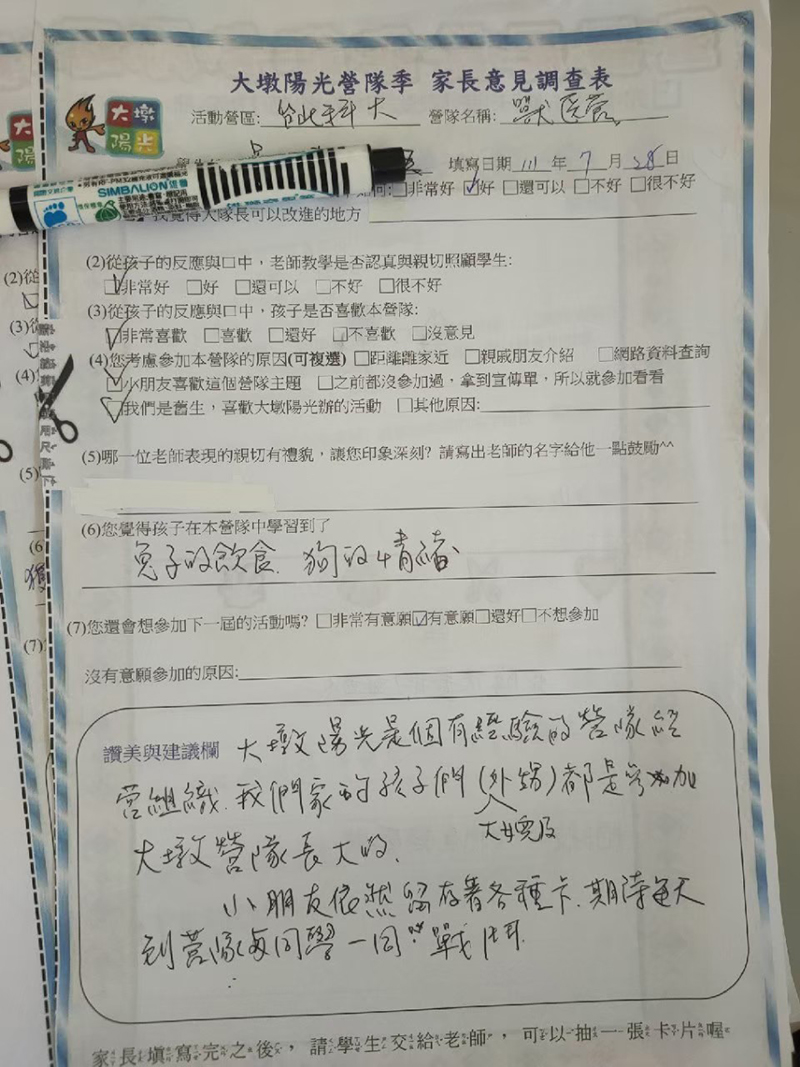 大墩陽光營隊季 家長意見調查表
大墩
陽光
活動營區: 台北科大 營隊名稱: 獸醫營
填寫日期 111 年 7 月 28 日
□非常好 ☑好 □還可以 □不好 □很不好
我覺得大隊長可以改進的地方
SIMBALION
(2)從孩子的反應與口中，老師教學是否認真與親切照顧學生:
☑非常好 □好 □還可以 □不好 □很不好
(3)從孩子的反應與口中，孩子是否喜歡本營隊:
☑非常喜歡 □喜歡 □還好 □不喜歡 □沒意見
(4)您考慮參加本營隊的原因(可複選) □距離離家近 □親戚朋友介紹 □網路資料查詢
☑小朋友喜歡這個營隊主題 □之前都沒參加過，拿到宣傳單，所以就參加看看
☑我們是舊生，喜歡大墩陽光辦的活動 □其他原因:
(5)哪一位老師表現的親切有禮貌，讓您印象深刻? 請寫出老師的名字給他一點鼓勵^^
(6)您覺得孩子在本營隊中學習到了
兔子的飲食、狗的情緒
(7)您還會想參加下一屆的活動嗎? □非常有意願☑有意願□還好□不想參加
沒有意願參加的原因:
讚美與建議欄 大墩陽光是個有經驗的營隊經
營組織.我們家的孩子們(外甥)都是參加
大墩營隊長大的.
小朋友依然留存著各種卡.期待每天
到營隊與同學一同"戰鬥
家長填寫完之後，請學生交給老師，可以抽一張卡片喔